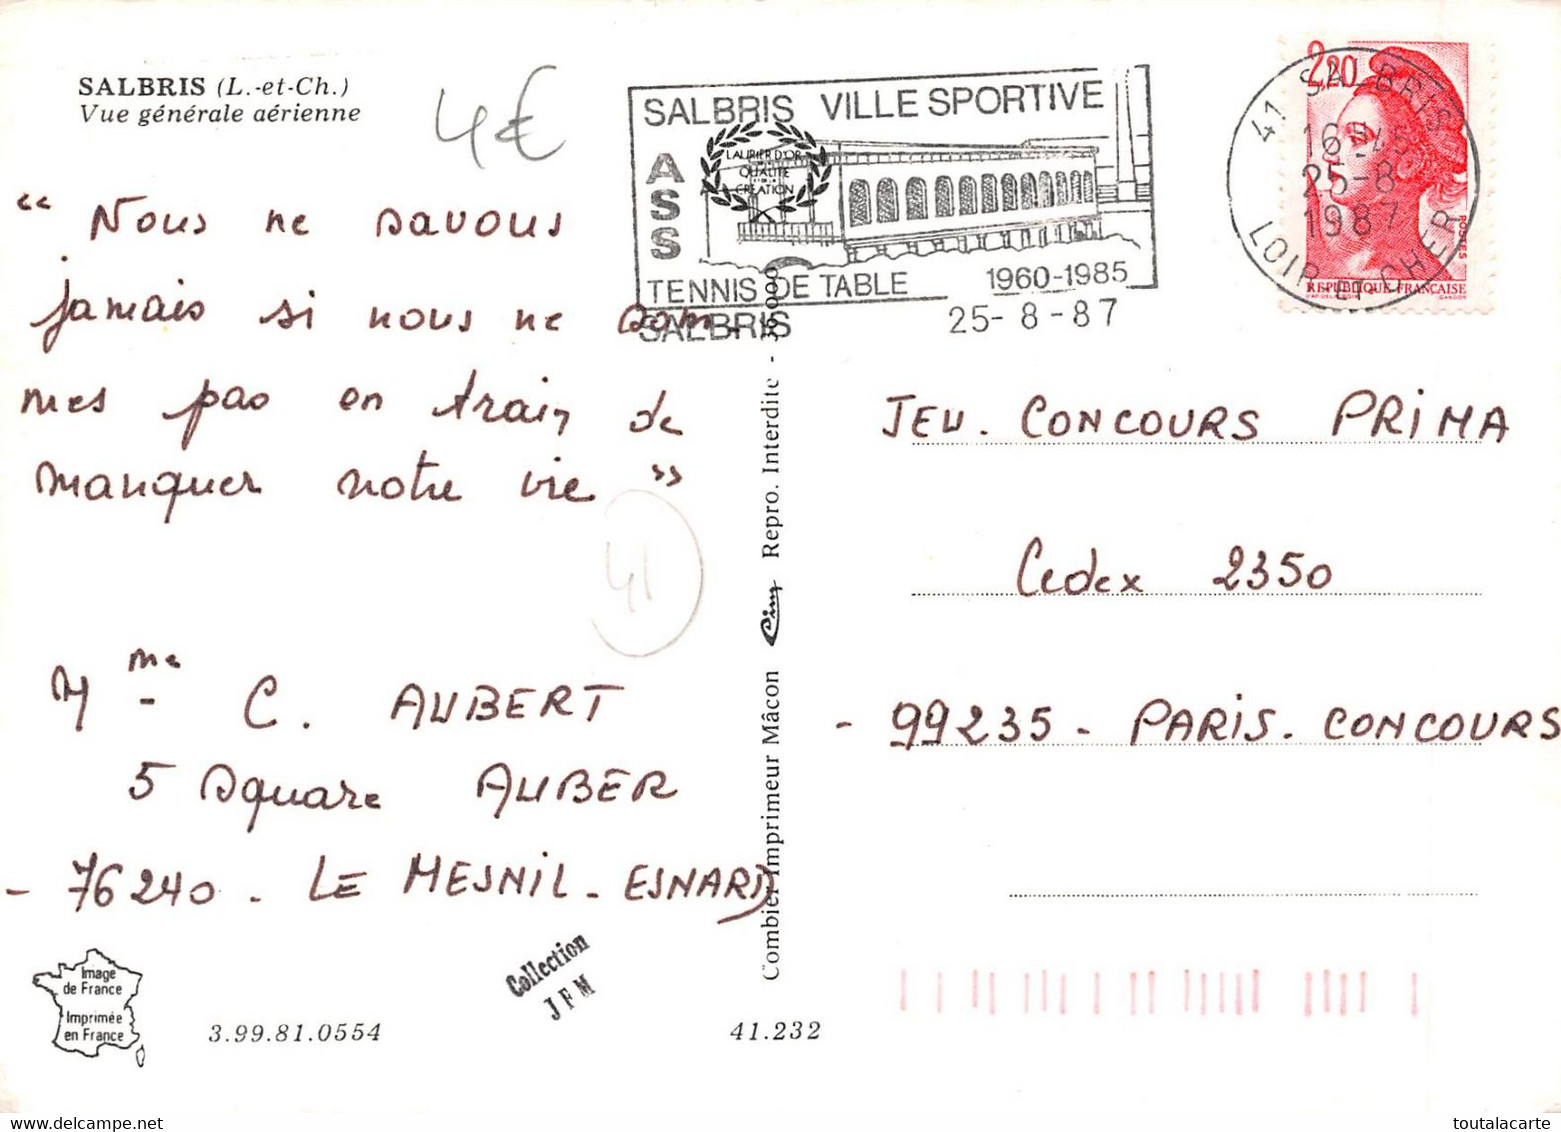 SALBRIS (L.-et-Ch.)
Vue générale aérienne
4€
SALBRIS VILLE SPORTIVE
ASS
LAURIER D'OR
QUALITÉ
CRÉATION
TENNIS DE TABLE 1960-1985
SALBRIS 25-8-87
2,20
POSTES
REPUBLIQUE FRANÇAISE
41 SALBRIS
16 H 45
25-8
1987
LOIR ET CHER
“ Nous ne savous
jamais si nous ne som-
mes pas en train de
manquer notre vie ”
41
Mme C. AUBERT
5 square AUBER
- 76240 - LE MESNIL - ESNARD
JEU. CONCOURS PRIMA
Cedex 2350
- 99235 - PARIS. CONCOURS
Combier Imprimeur Mâcon Cim Repro. Interdite -
Image
de France
Imprimée
en France
3.99.81.0554
Collection
JFM
41.232
toutalacarte